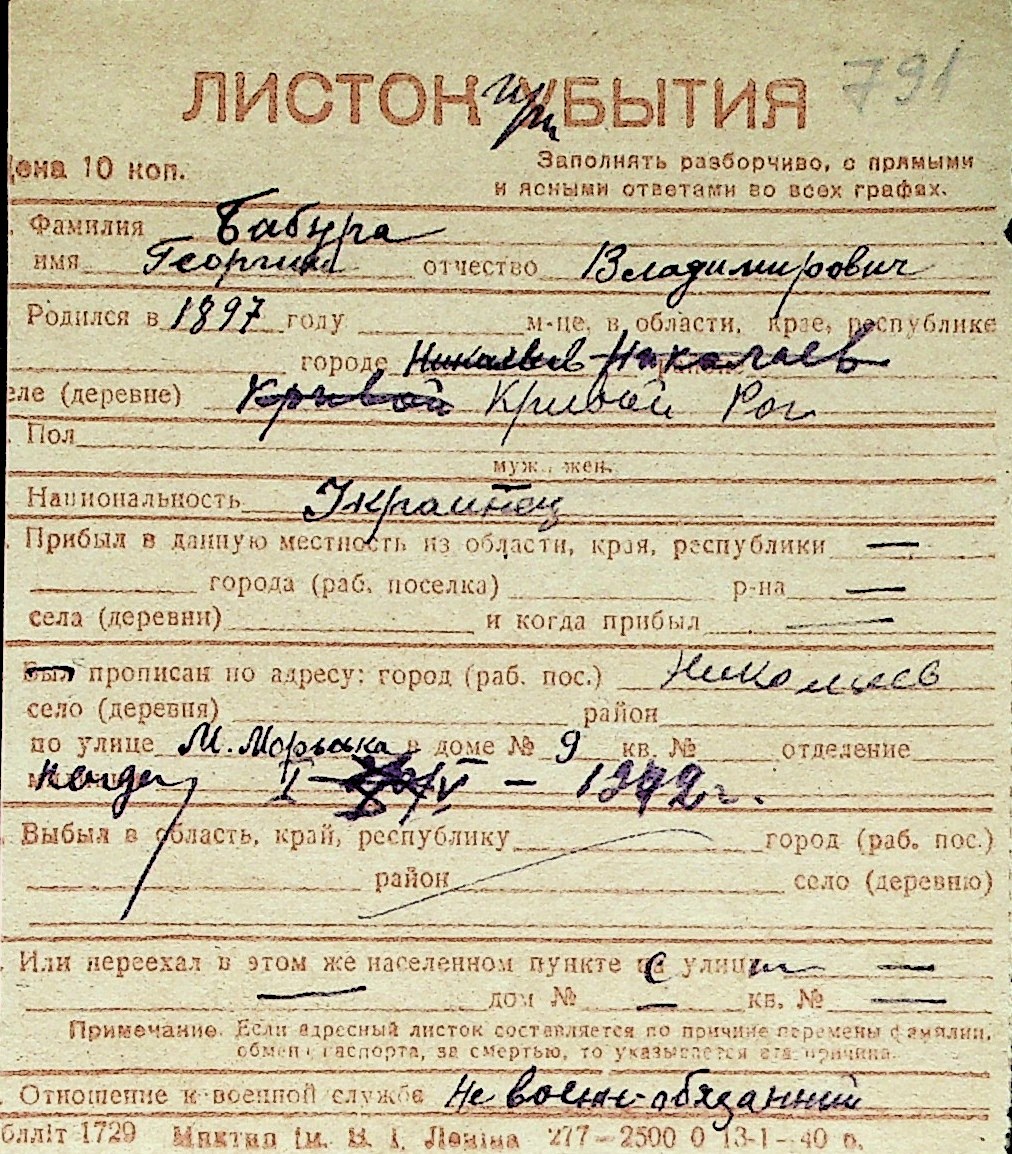 791
ЛИСТОК при УБЫТИЯ
Цена 10 коп.
Заполнять разборчиво, с прямыми
и ясными ответами во всех графах.
Фамилия Бабура
имя Георгий отчество Владимирович
Родился в 1897 году м-це, в области, крае, республике
городе Николаев Николаев
селе (деревне) Кривой Кривой Рог
Пол
муж., жен.
Национальность Украинец
Прибыл в данную местность из области, края, республики —
города (раб. поселка) р-на —
села (деревни) и когда прибыл —
Был прописан по адресу: город (раб. пос.) Николаев
село (деревня) район
по улице М. Морьака в доме № 9 кв. № отделение
когда I V – 1942 г.
Выбыл в область, край, республику город (раб. пос.)
район село (деревню)
Или переехал в этом же населенном пункте с улицы —
— дом № — кв. № —
Примечание. Если адресный листок составляется по причине перемены фамилии,
обмена паспорта, за смертью, то указывается эта причина.
Отношение к военной службе Не военно-обязанний
блліт 1729 ім. В. І. Леніна 277—2500 0 13-1—40 р.